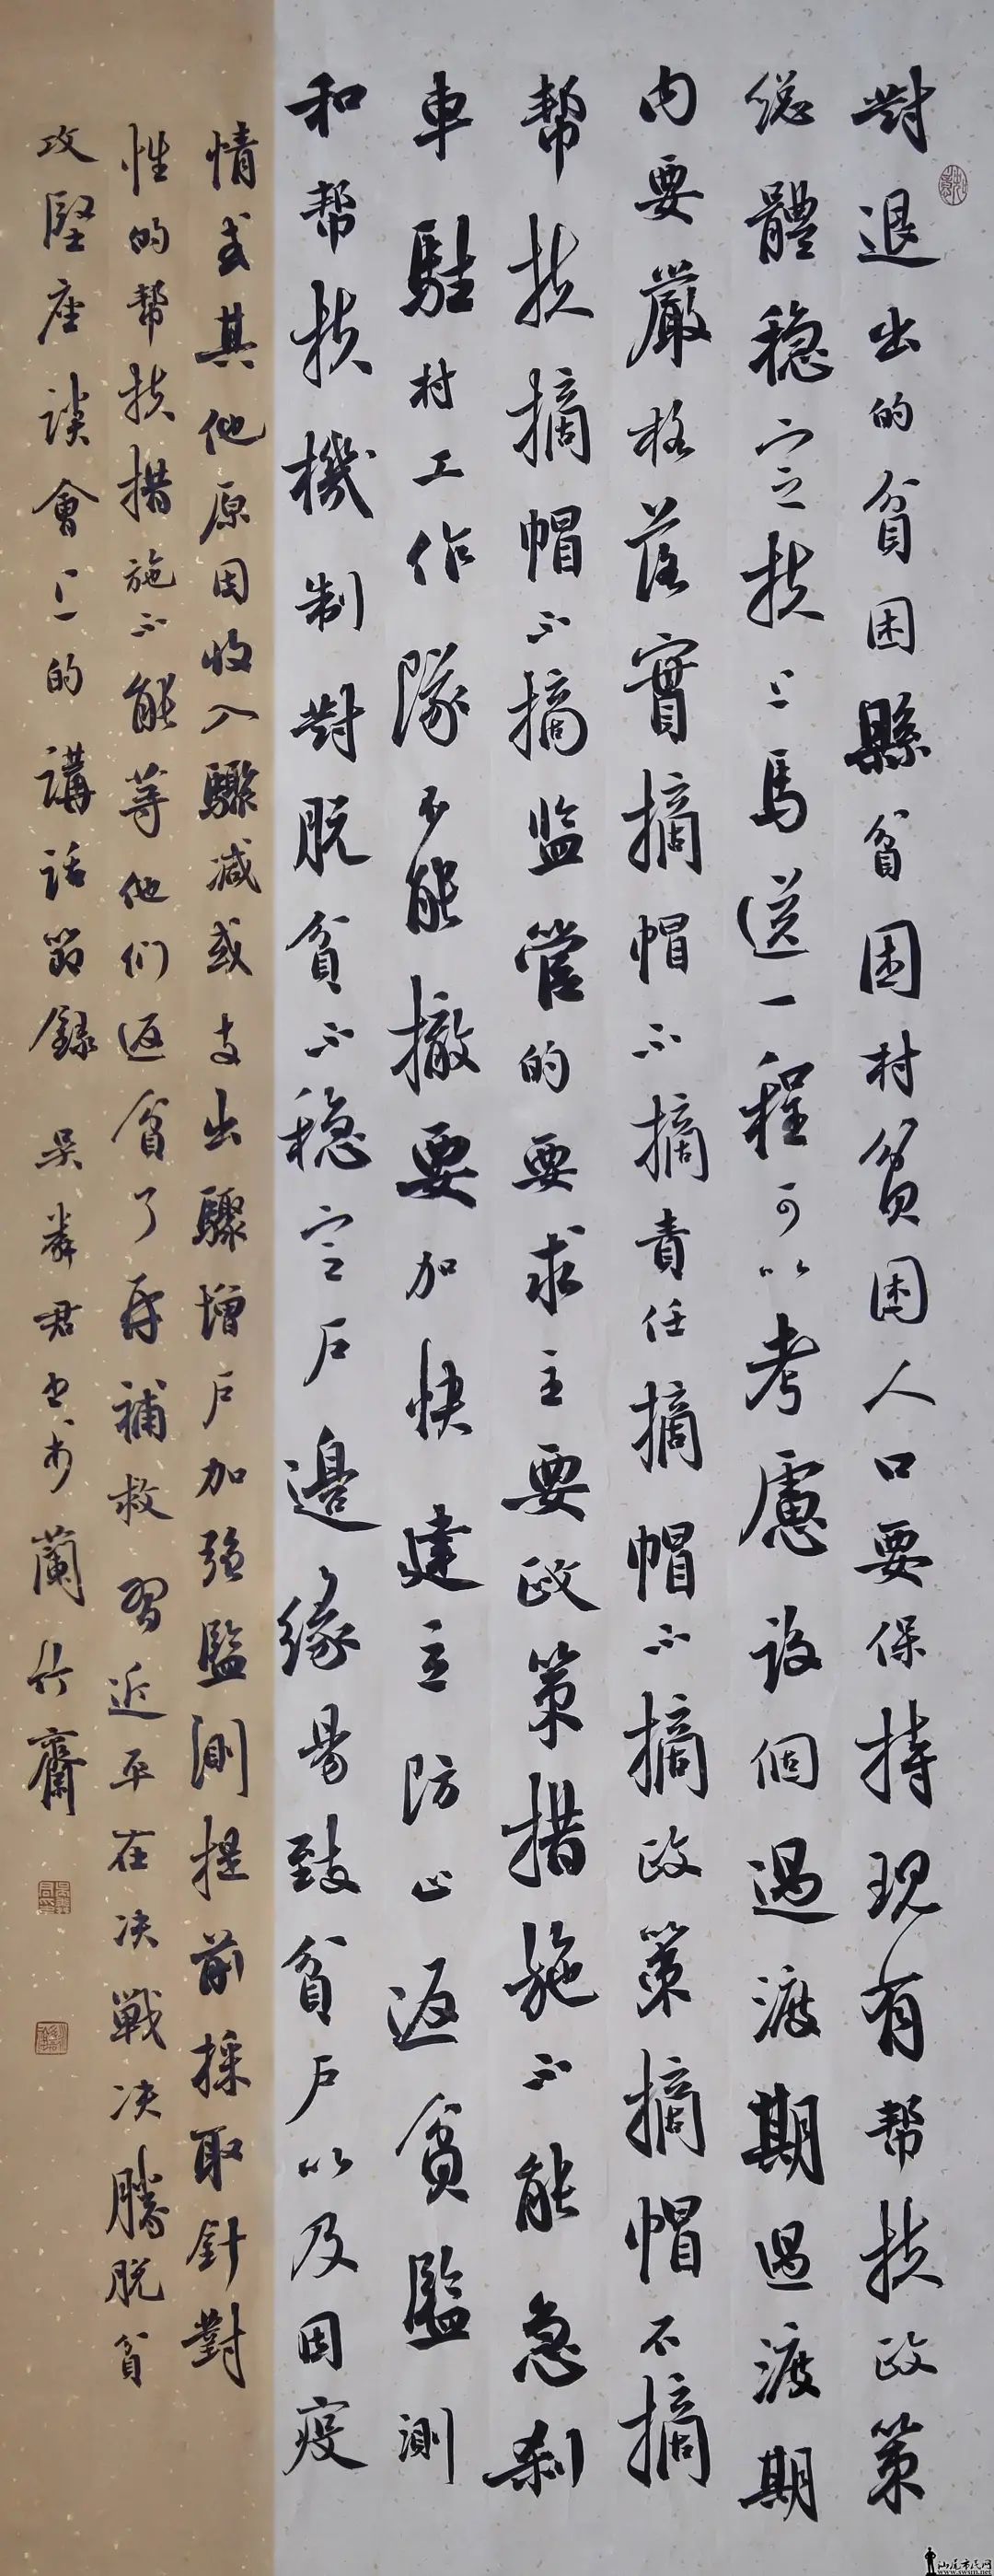 對退出的貧困縣貧困村貧困人口要保持現有帮扶政策
總體穩定扶上馬送一程可以考慮設個過渡期過渡期
内要嚴格落實摘帽不摘責任摘帽不摘政策摘帽不摘
帮扶摘帽不摘监管的要求主要政策措施不能急刹
車駐村工作隊不能撤要加快建立防止返貧監測
和帮扶機制對脱貧不穩定户邊緣易致貧户以及因疫
情或其他原因收入驟减或支出驟增户加强監測提前採取針對
性的帮扶措施不能等他们返貧了再補救習近平在决戰决勝脱貧
攻堅座談會上的講話節錄 吴舜君書於蘭竹齋
汕尾市民网